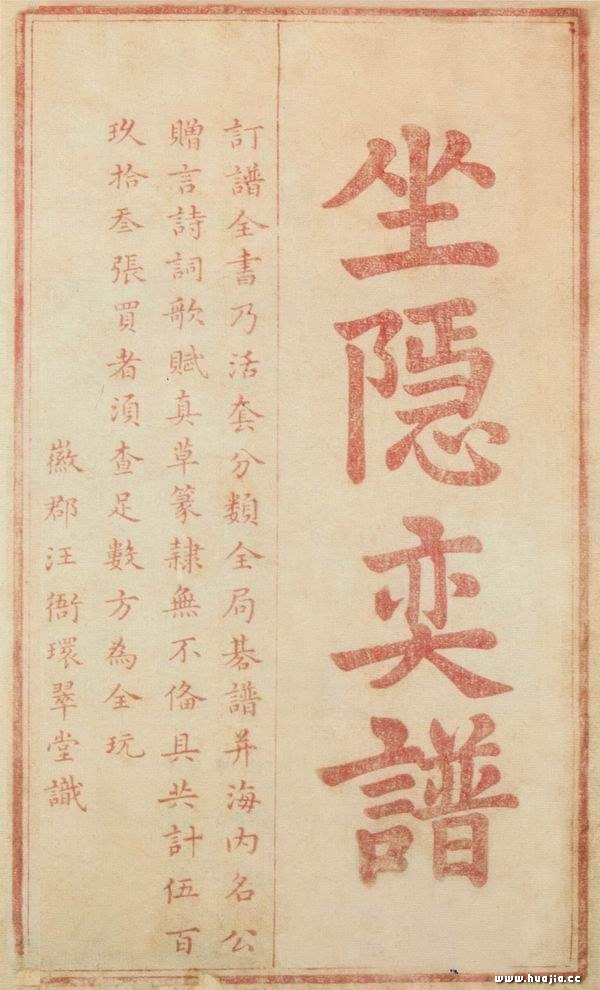 坐隱奕譜
訂譜全書乃活套分類全局碁譜并海内名公
贈言詩詞歌賦真草篆隷無不俻具共計伍百
玖拾叁張買者須查足數方為全玩
徽郡汪衙環翠堂識
www.huajia.cc